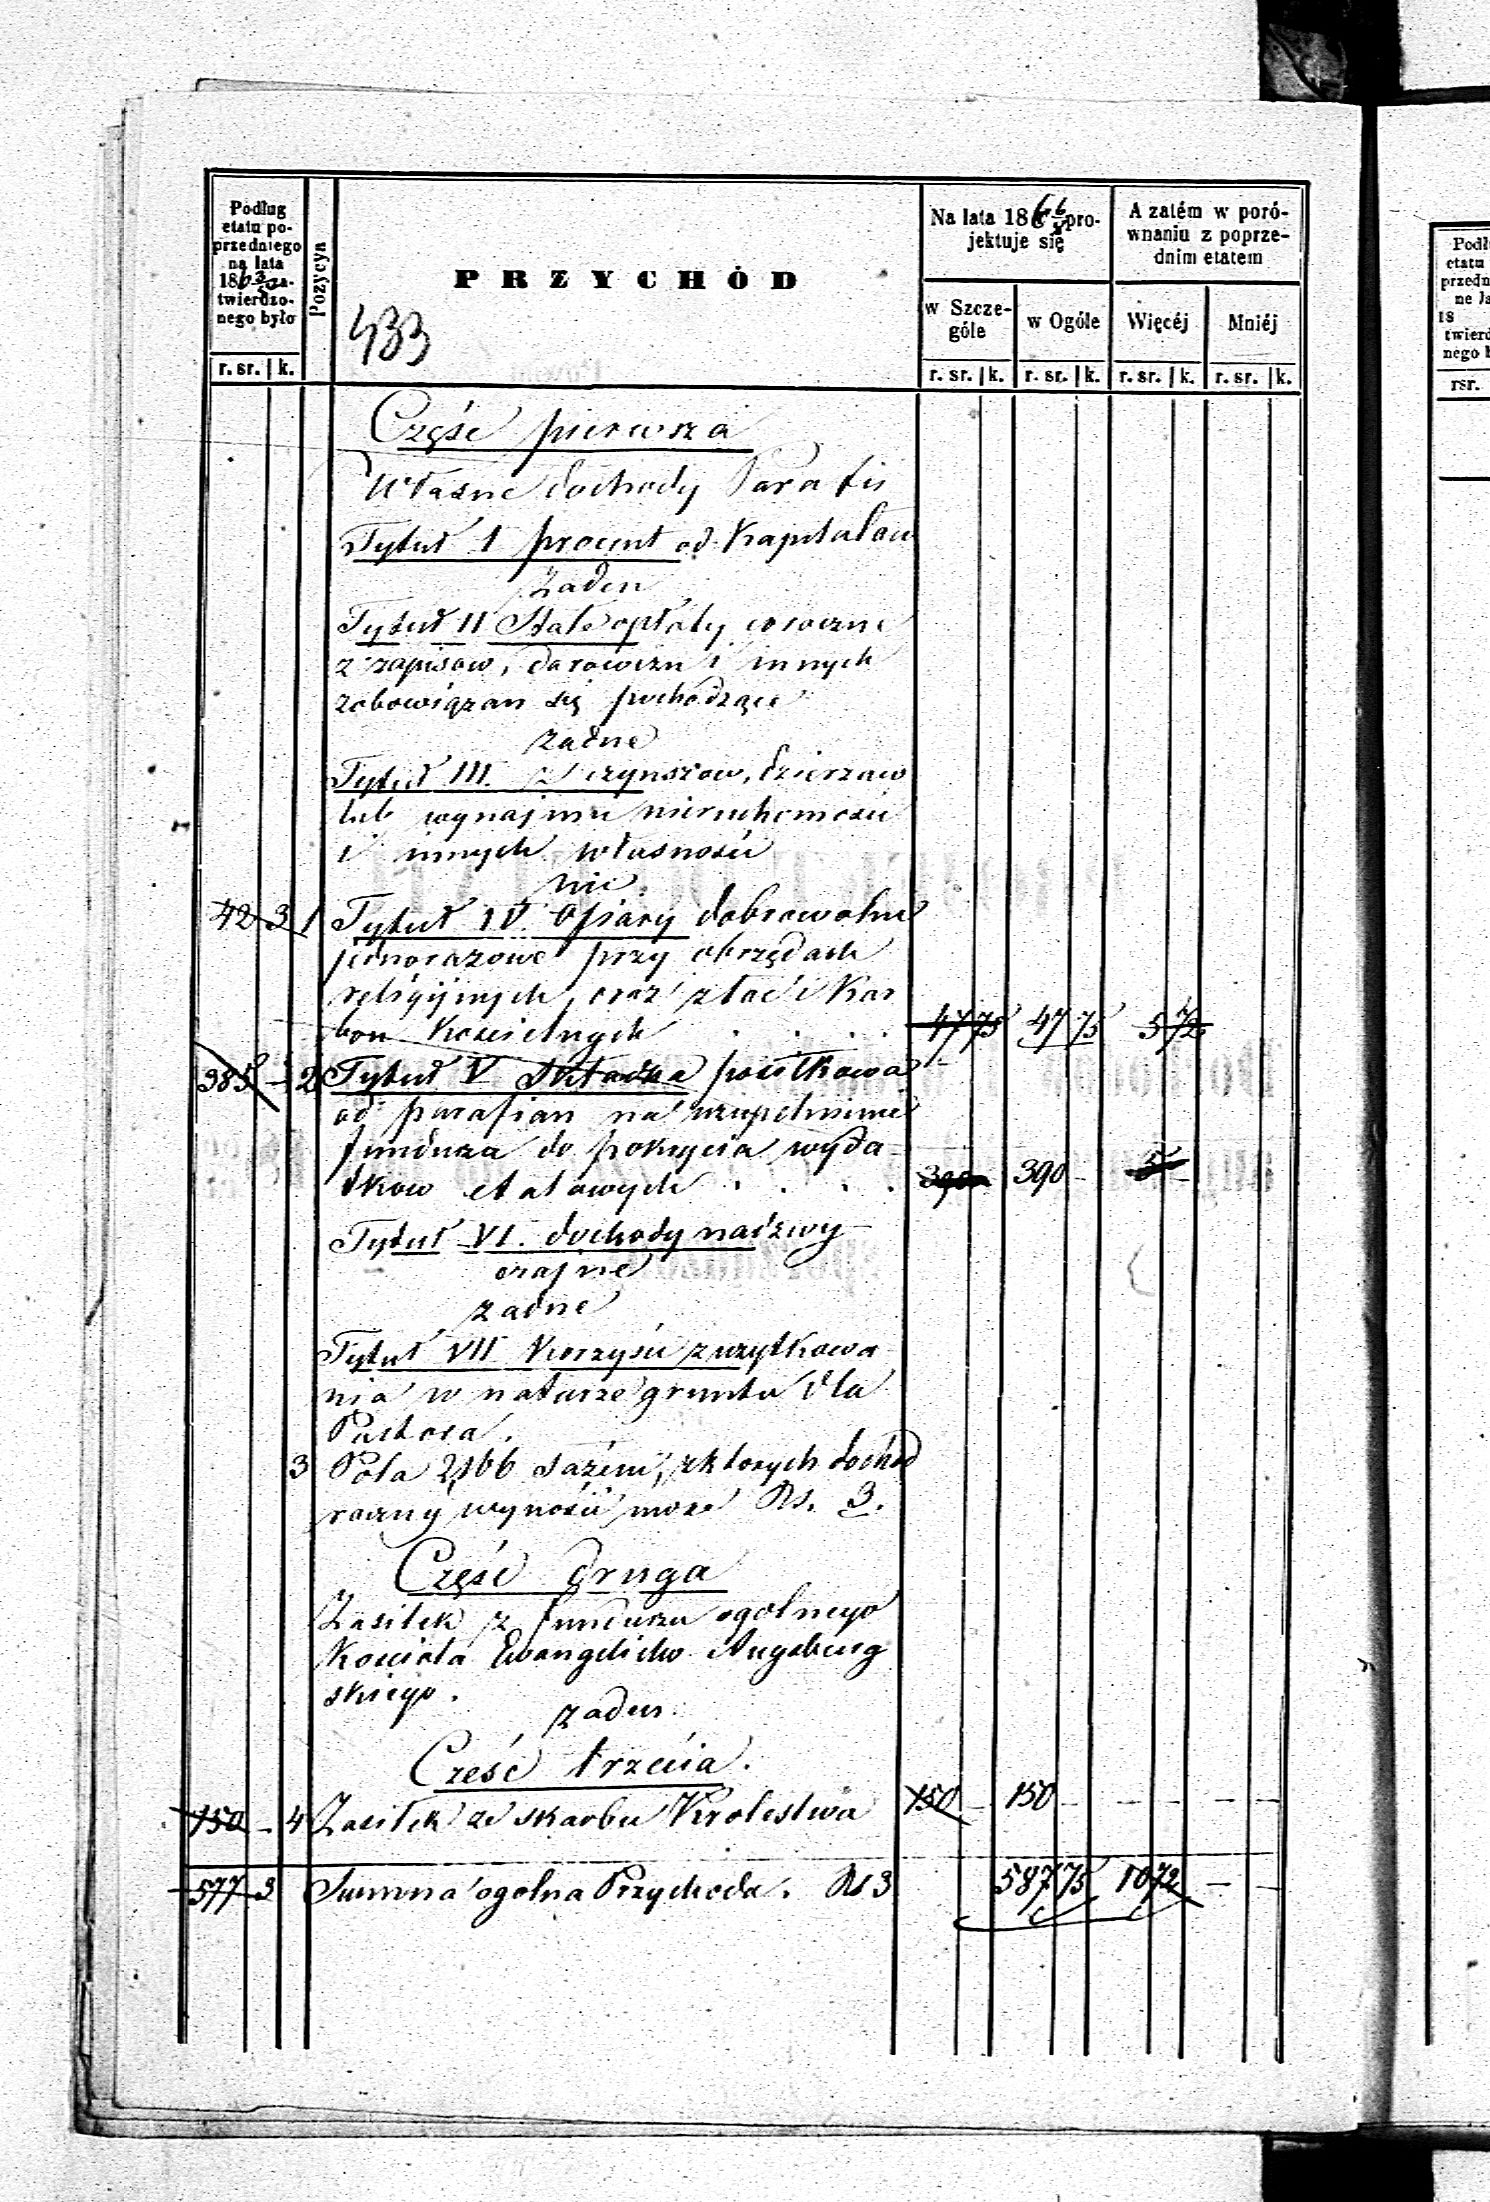 Podług
etatu po-
przedniego
na lata
1863/5 za-
twierdzo-
nego było
r. sr. k.
Pozycya
PRZYCHÓD
433
Na lata 1866/8 pro-
jektuje się
w Szcze-
góle
w Ogóle
r. sr. k. r. sr. k.
A zatém w poró-
wnaniu z poprze-
dnim etatem
Więcéj Mniéj
r. sr. k. r. sr. k.
Część pierwsza
Własne dochody Parafii
Tytuł I procent od Kapitałow
żaden
Tytuł II Stałe opłaty coroczne
z zapisow, darowizn i innych
zobowiązan się pochodzące
żadne
Tytuł III. z czynszow, dzierzaw
lub wynajmu nieruchomości
i innych własności
nic.
42 3 1 Tytuł IV. Ofiary dobrowolne
jednorazowe przy obrzędach
religijnych, oraz z tac i Kar
bon Koscielnych . . . . 47 75 47 75 5 72
385 - 2 Tytuł V Składka positkowa
od parafian na uzupełnienie
funduszu do pokrycia wyda-
tkow etatowych . . . . 390 390 - 5 -
Tytuł VI. dochody nadzwy-
czajne
żadne
Tytuł VII Korzyści z użytkowa
nia w naturze gruntu dla
Pastora.
3 Pola 2,166 sążeni, z ktorych dochód
roczny wynosić może Rs. 3.
Część druga
Zasiłek z funduszu ogolnego
Kościoła Ewangelicko Augsburg
skiego.
żaden.
Cześć trzecia.
150 - 4 Zasiłek ze skarbu Krolestwa 150 - 150 - - - - -
577 3 Summa ogolna Przychodu. Rs 3 587 75 10 72 - -
Podł
etatu
przedn
ne la
18
twierd
nego b
rsr.